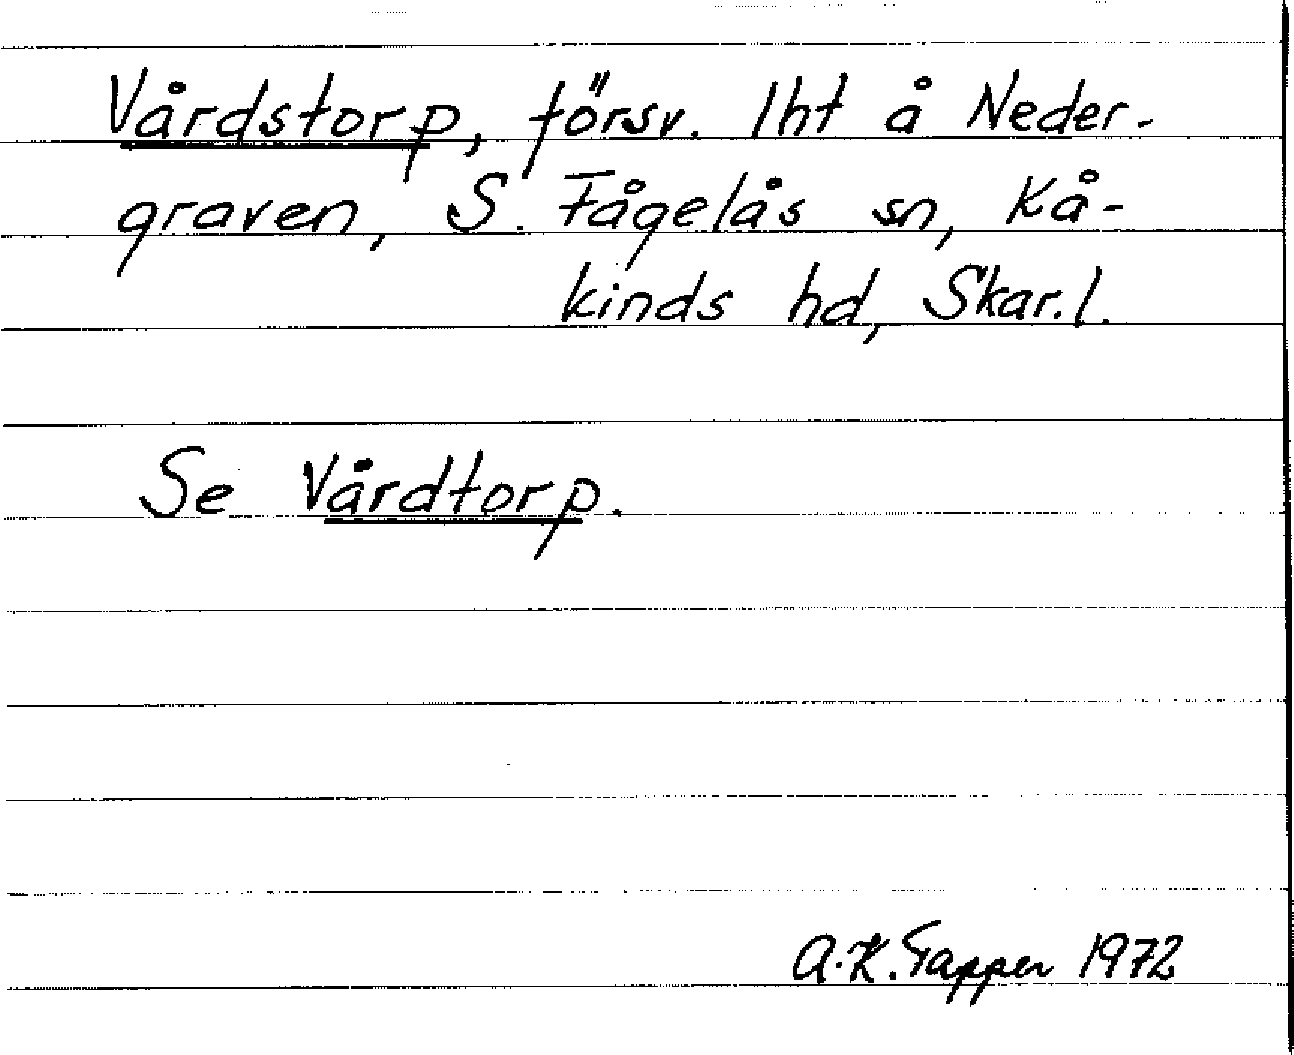 Vårdstorp, försv. lht å Neder-
graven, S. Fågelås sn, Kå-
kinds hd, Skar.l.
Se Vårdtorp.
A.K.Tapper 1972